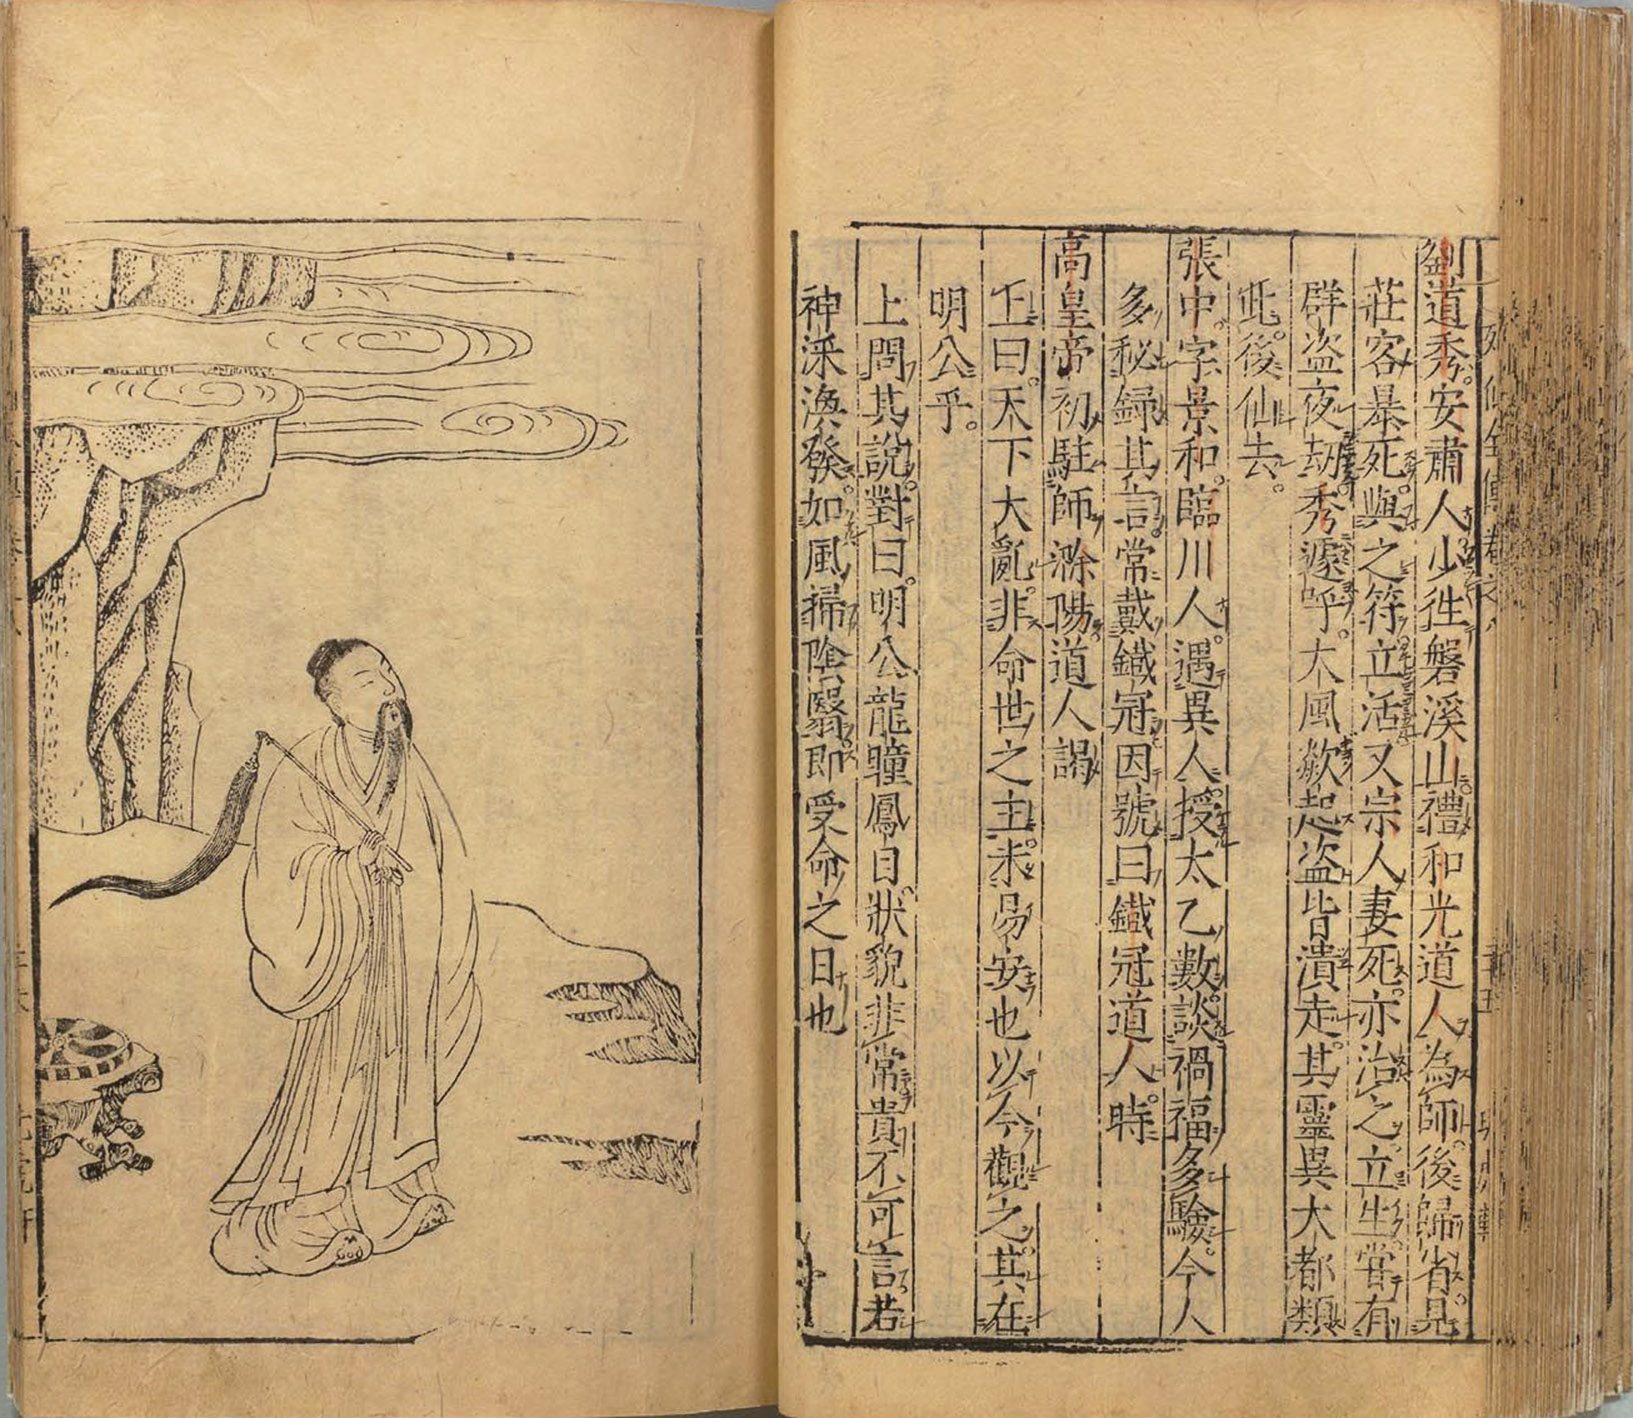 劉道秀。安肅人。少徃磐溪山。禮和光道人為師。後歸省。見
莊客暴死。與之符。立活。又宗人妻死。亦治之。立生。甞有
群盗夜刼。秀遽呼。大風歘起。盗皆潰走。其靈異大都類
此。後仙去。
張中。字景和。臨川人。遇異人。授太乙數。談禍福多驗。今人
多秘録其言。常戴鐡冠。因號曰鐡冠道人。時
高皇帝初駐師滁陽。道人謁
上曰。天下大亂。非命世之主。未易安也。以今觀之。其在
明公乎。
上問其說。對曰。明公龍瞳鳳目。狀貌非常。貴不可言。若
神采渙發。如風掃陰翳。即受命之日也